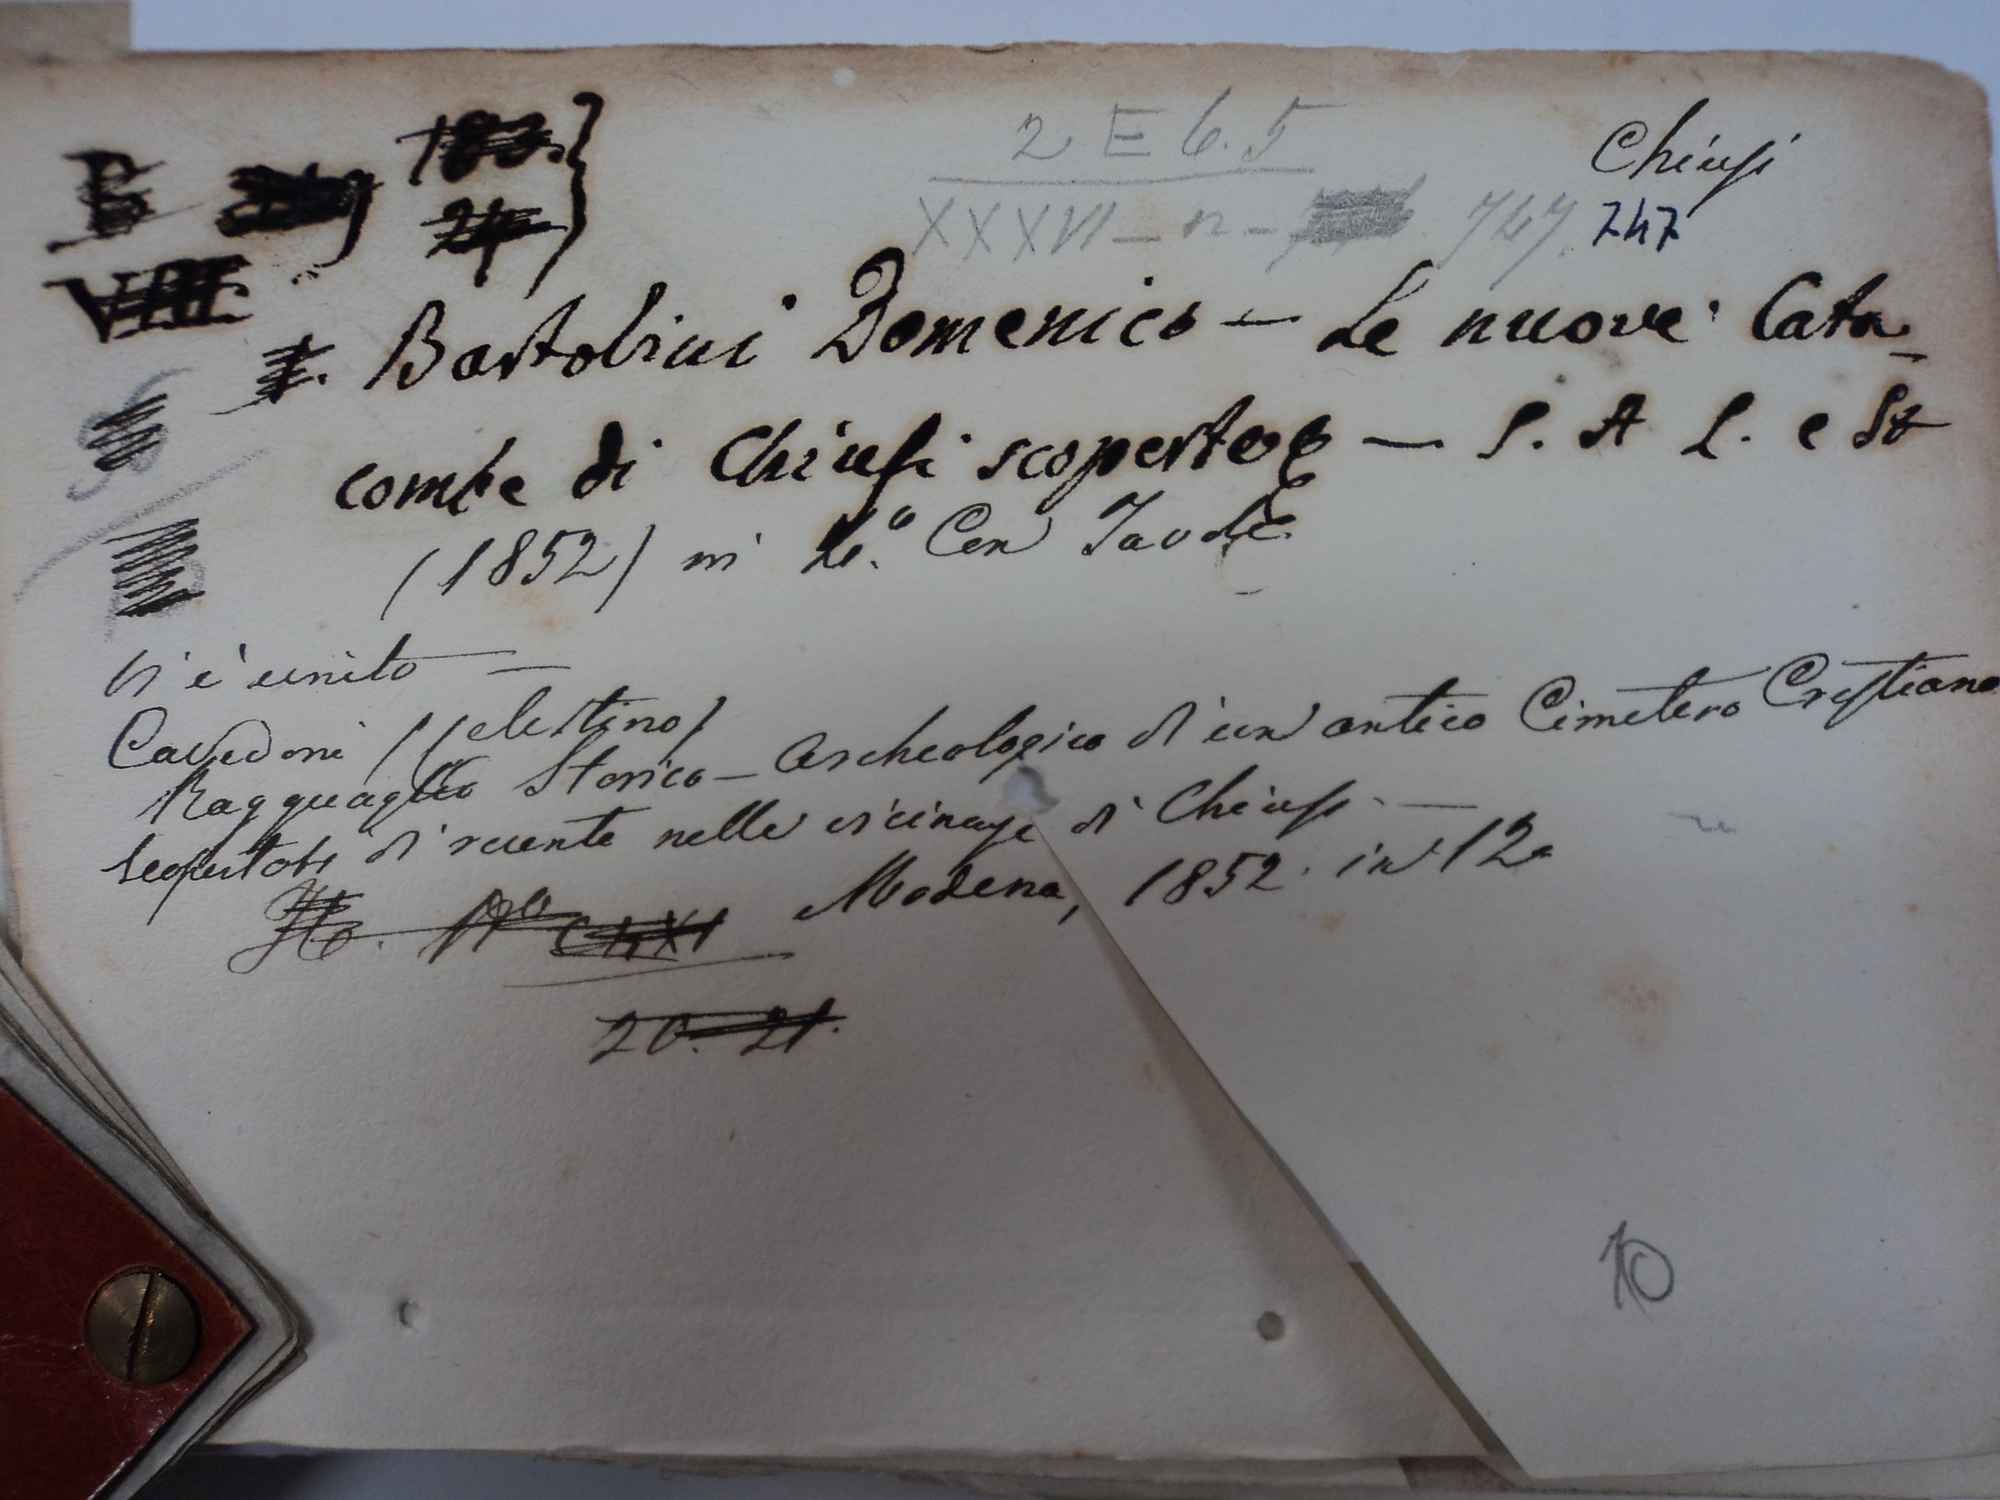 183.
24
2 E 6.5
Chiusi
XXXVI - n - 747. 747
VIII.
Bartolini Domenico — Le nuove Cata-
combe di Chiusi scoperte — S. A L. e St
(1852) in 4.° Con Tavole
Vi è unito —
Cavedoni (Celestino)
Ragguaglio Storico - Archeologico di un antico Cimetero Cristiano
di recente nelle vicinanze di Chiusi —
Modena, 1852. in 12.
20. 21.
10